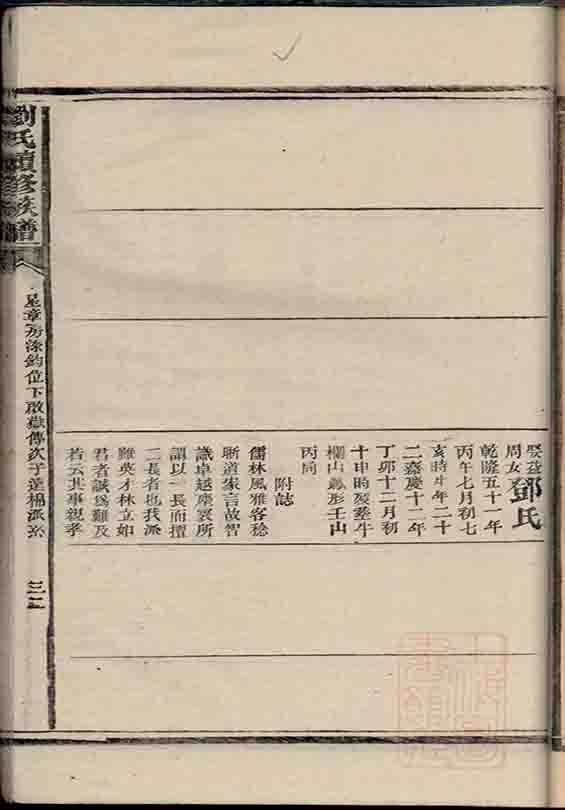 娶益
周女鄧氏
乾隆五十一年
丙午七月初七
亥時年二十
二嘉慶十二年
丁卯十二月初
十申時歿塟牛
欄山鵞形壬山
丙向
附誌
儒林風雅客稔
斯道家言故智
識卓越塵寰所
謂以一長而擅
二長者也我派
雖英才林立如
君者誠為難及
若云其事親孝
劉氏續修族譜
星章房添鈞位下啟嶽傳次子達楊派系